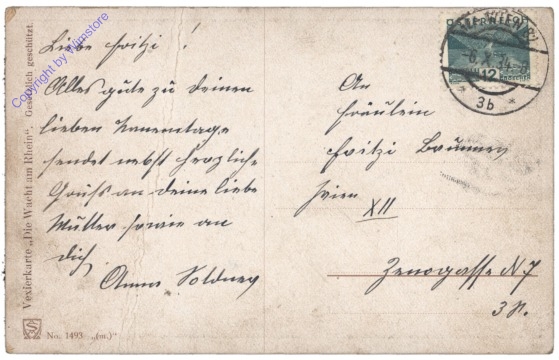 Liebe Fritzi!
Alles gute zu Deinen
lieben Namenstage
sendet nebst herzliche
Grüße an Deine liebe
Mutter sowie an
Dich
Anna Soldner
An
Fräulein
Fritzi Brunner
Wien
XII
Zenogasse N 7
3 St.
Vexierkarte „Die Wacht am Rhein“. Gesetzlich geschützt.
No. 1493 „(m.)“
Copyright by Wimstore
3b